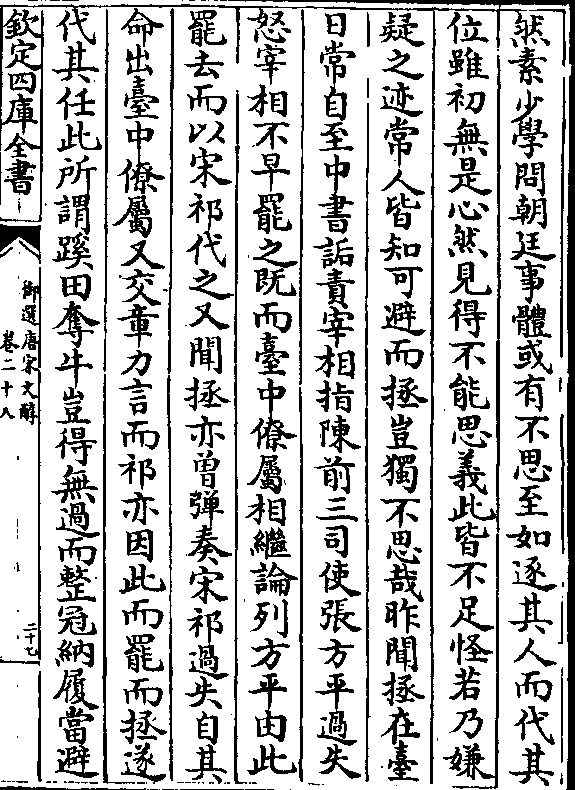 然素少學問朝廷事體或有不思至如逐其人而代其
位雖初無是心然見得不能思義此皆不足怪若乃嫌
疑之迹常人皆知可避而拯豈獨不思哉昨聞拯在臺
日常自至中書詬責宰相指陳前三司使張方平過失
怒宰相不早罷之既而臺中僚屬相繼論列方平由此
罷去而以宋祁代之又聞拯亦曾彈奏宋祁過失自其
命出臺中僚屬又交章力言而祁亦因此而罷而拯遂
代其任此所謂蹊田奪牛豈得無過而整冠納履當避
欽定四庫全書
御選唐宋文醇
卷二十八
二十七